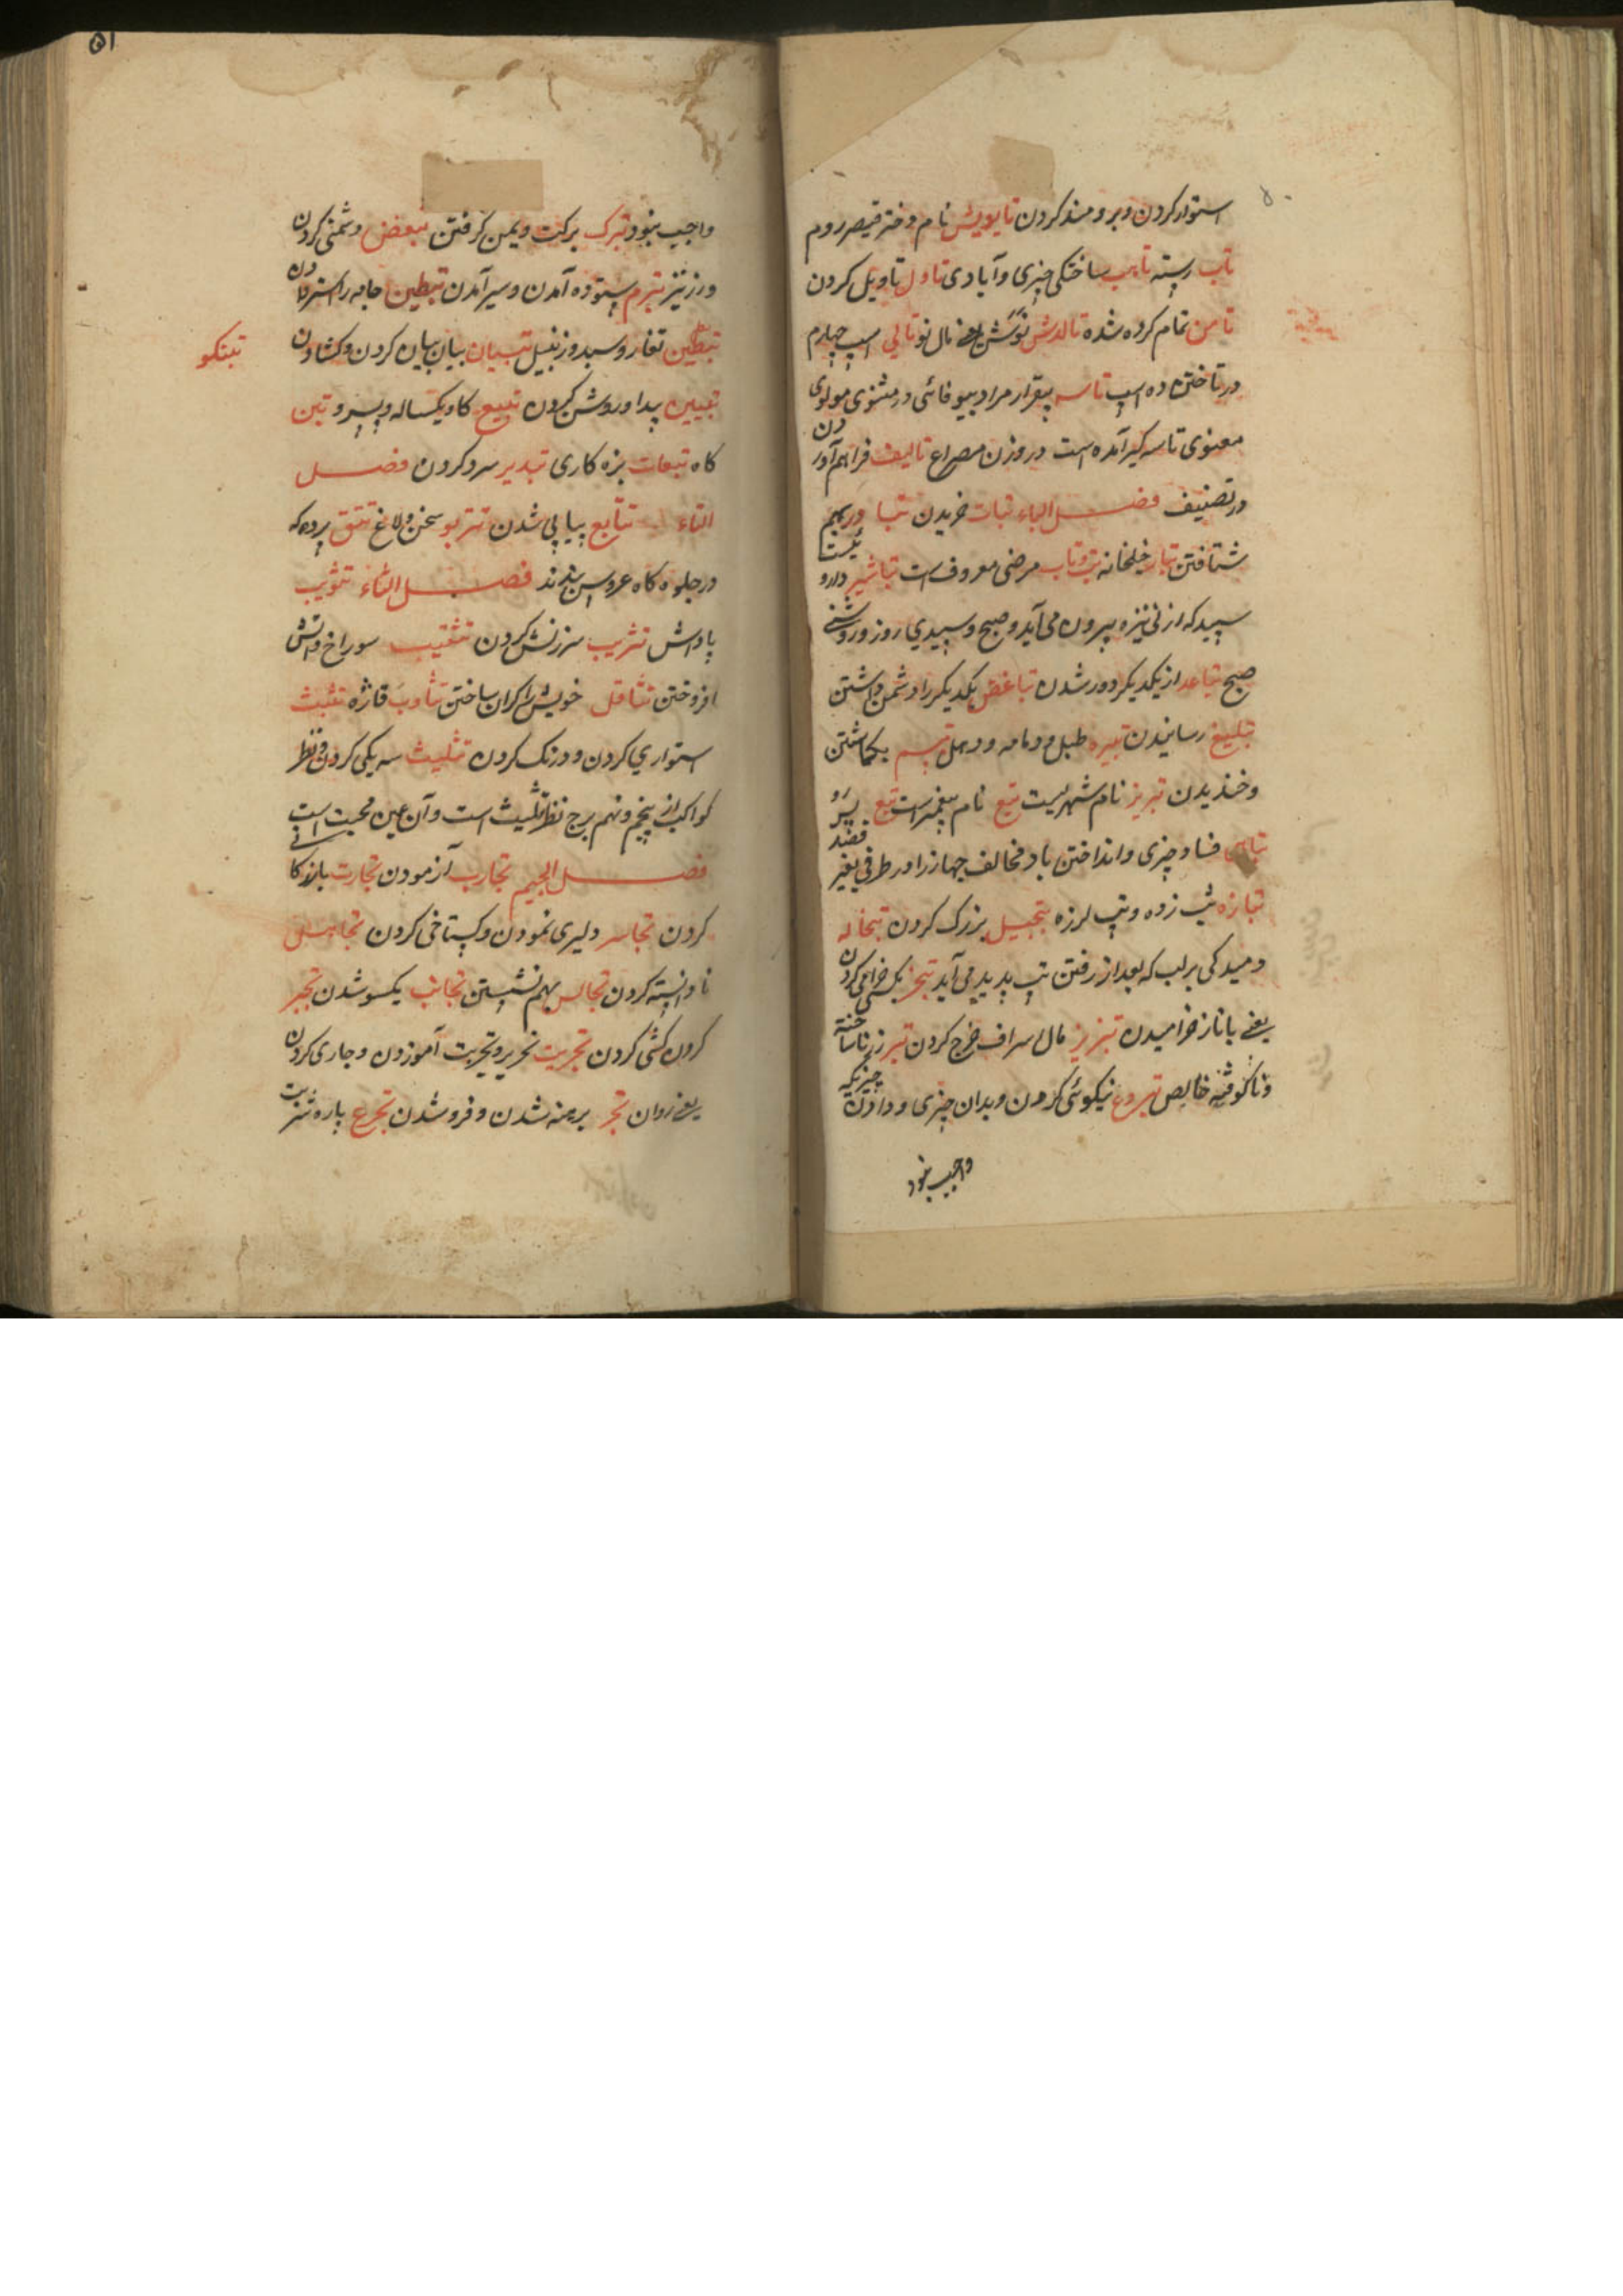 استوار کردن و برومند کردن تایویش نام دختر قیصر روم
تاب رسته تایب ساختگی چیزی و آبادی تاول تاویل کردن
تامن تمام کرده شده تالدش نوکش یعنی مال نو تالی اسپ چهارم
در تاختن ده اسپ تاسه بیقرار مراد بیوفائی در مثنوی مولوی
معنوی تاسه گیر آمده است در وزن مصراع تالیف فراهم آوردن
و تصنیف فصل الباء تبات خریدن تبادر بهم
شتافتن تبار خیلخانه تب و تاب مرضی معروف است تباشیر داروئیست
سپید که از نی نیزه بیرون می آید و صبح و سپیدی روز و روشنی
صبح تباعد از یکدیکر دور شدن تباغض یکدیکر را دشمن داشتن
تبلیغ رسانیدن تبیره طبل و دمامه و دهل تبسم بکماشتن
و خندیدن تبریز نام شهریست تبع نام پیغمبر است تبع پسرو
فساد چیزی و انداختن باد مخالف جهاز را در طرفی بغیر قصد
تبازه تب زده و تپ لرزه تبجیل بزرک کردن تبخاله
دمیدکی بر لب که بعد از رفتن تپ پدید می آید تبختر بکشی خرامی کردن
یعنی باناز خرامیدن تبزیز مال اسراف خرج کردن تبر زر ناساخته
و ناکوفته خالص تبروع نیکوئی کردن و بدان چیزی و دادن چیزیکه
واجب نبود
۵۱
واجب نبود تبرک برکت و یمن کرفتن تبغض دشمنی کردن
ورز نیز تبرم ستوده آمدن و سیر آمدن تبطین جامه را استر دادن
تبطین تغار و سبد و زنبیل تبیان بیان بیان کردن و کشادن
تبنکو
تبیین پیدا و روشن کردن تبیع کاو یکساله و پسرو تبن
کاه تبعات بزه کاری تبدیر سرد کردن فصل
التاء تتابع پیاپی شدن تتربو سخن و لاغ تتق پرده که
در جلوه کاه عروس بندند فصل الثاء تثویب
پاداش تثریب سرزنش کردن تثقیب سوراخ و آتش
افروختن تثاقل خویش را کران ساختن تثاوب فاژه تثبیت
استواری کردن و درنک کردن تثلیث سه یکی کردن و نظر
کواکب از پنجم و نهم برج نظر تثلیث است و آن عین محبت است
فصل الجیم تجارب آزمودن تجارت بازرکانی
کردن تجاسر دلیری نمودن و کستاخی کردن تجاهل
نادانسته کردن تجالس بهم نشستن تجانب یکسو شدن تجبر
کردن کشی کردن تجریت تحریر و تجربت آموزدن و جاری کردن
یعنی روان تجر برهنه شدن و فرو شدن تجرع پاره شربت